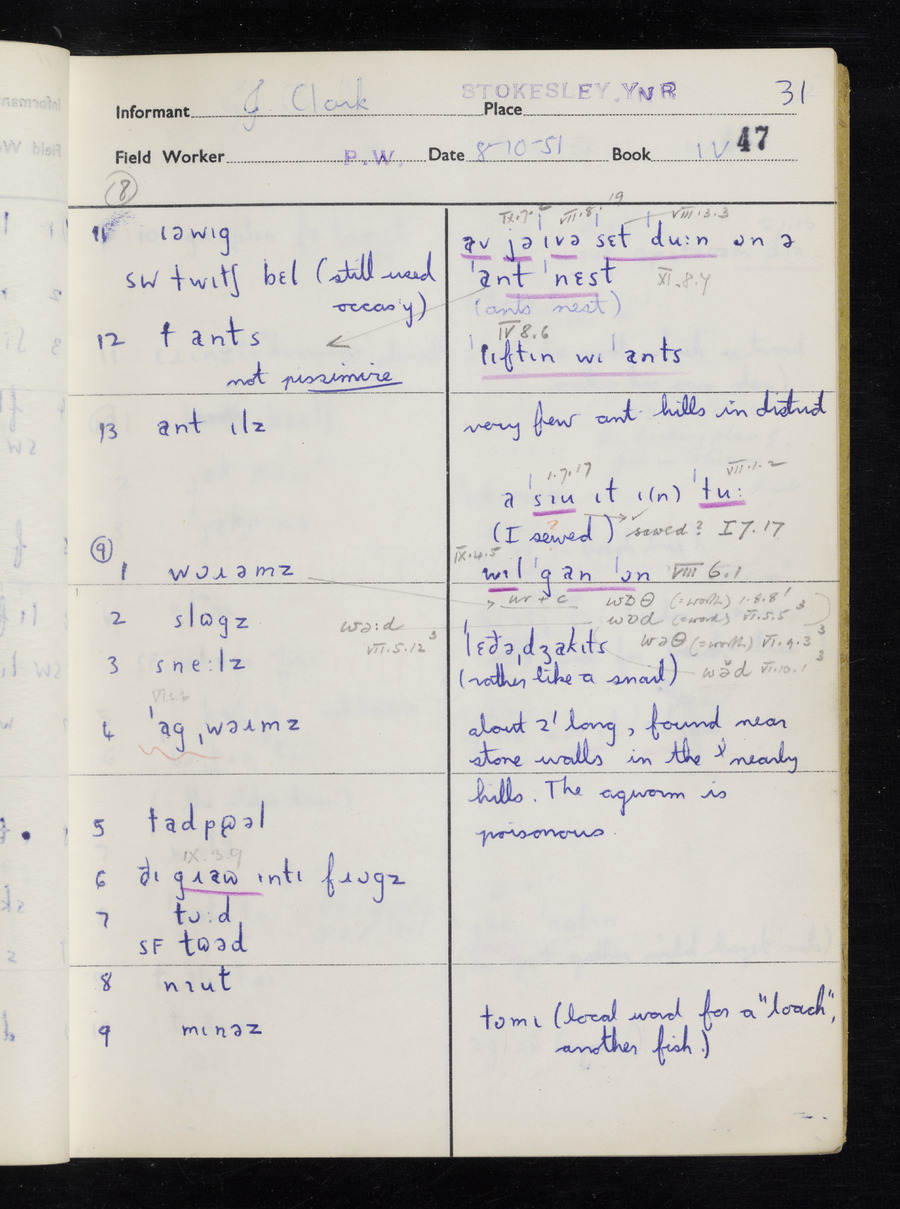 Informant J. Clark STOKESLEY, YNR Place 31
Field Worker P.W. Date 8-10-51 Book IV 47
8
11 ɪəwɪg
sw twɪtʃ bɛl (still used
occasy)
12 t ants
not pissimire
13 ant ɪlz
9
1 wɔɹəmz
2 slɷgz
3 sneːlz
4 ˈagˌwəɹmz
5 tadpɷəl
IX.3.9
6 ðɪ gɹaw ɪntɪ fɹɔgz
7 tʊːd
SF tɷəd
8 nɪut
9 mɪnəz
VII.8.19 VIII.3.3
av jə ɪvə ˈsɛt ˈduːn ɔn ə
ˈant ˈnɛst XI.8.4
(ants nest)
IV 8.6
ˈlɪftɪn wɪ ˈants
very few ant-hills in district
1.7.17 VII.1.2
a ˈsɪu ɪt ɪ(n) ˈtuː
(I sewed) sewed? I 7.17
IX.4.5
wɪl ˈgan ˈɔn VIII 6.1
wr + c wɒθ (=worth) 1.8.8
wəːd wɒd (=word) VII.5.5
VII.5.12 wəθ (=worth) VI.9.3
ˈlɛðəˌdʒakɪts wə̆d VI.10.1
(rather like a snail)
about 2' long, found near
stone walls in the nearby
hills. The agworm is
poisonous.
tɒmɪ (local word for a "loach",
another fish.)